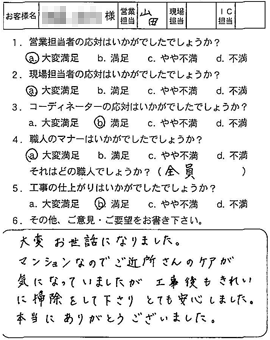 お客様名 様 営業担当 山田 現場担当 IC担当
1. 営業担当者の応対はいかがでしたでしょうか?
a. 大変満足 b. 満足 c. やや不満 d. 不満
2. 現場担当者の応対はいかがでしたでしょうか?
a. 大変満足 b. 満足 c. やや不満 d. 不満
3. コーディネーターの応対はいかがでしたでしょうか?
a. 大変満足 b. 満足 c. やや不満 d. 不満
4. 職人のマナーはいかがでしたでしょうか?
a. 大変満足 b. 満足 c. やや不満 d. 不満
それはどの職人でしょうか?(全員 )
5. 工事の仕上がりはいかがでしたでしょうか?
a. 大変満足 b. 満足 c. やや不満 d. 不満
6. その他、ご意見・ご要望をお書き下さい。
大変 お世話になりました。
マンションなのでご近所さんのケアが
気になっていましたが 工事後もきれい
に掃除をして下さり とても安心しました。
本当に ありがとうございました。